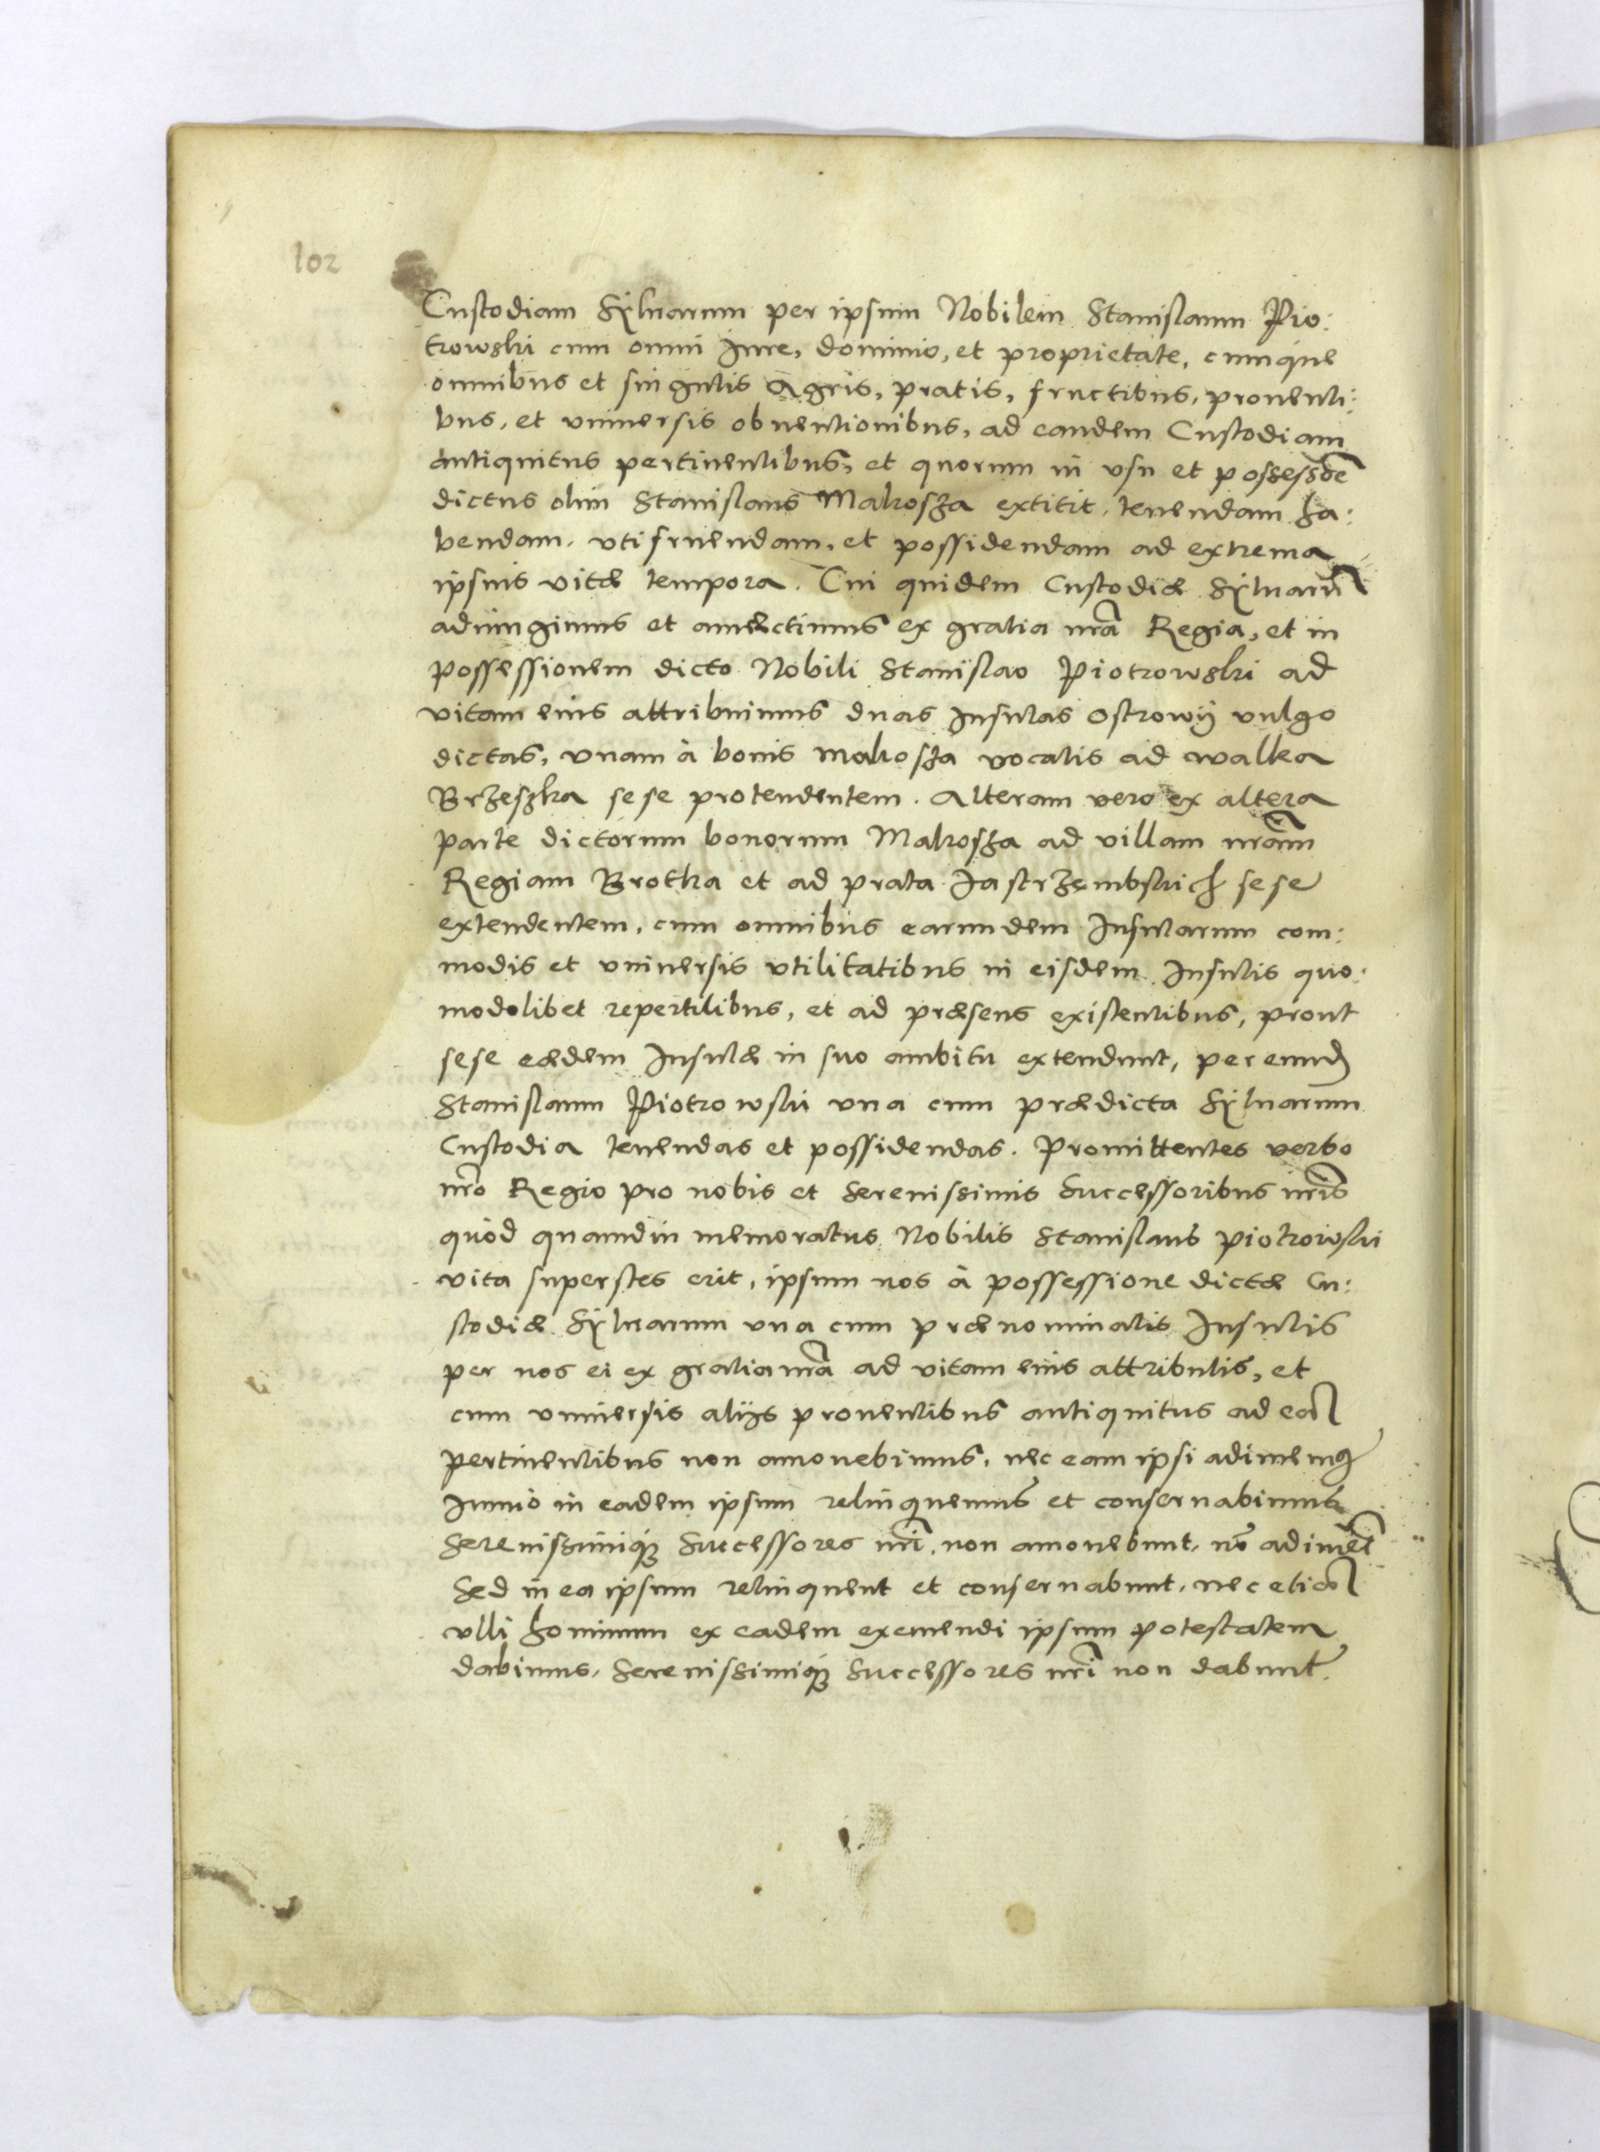 102
Custodiam Sÿluarum per ipsum Nobilem Stanislaum Pio:
trowski cum omni Jure, dominio, et proprietate, cumque
omnibus et singulis Agris, pratis, fructibus, prouenti:
bus, et vniuersis obuentionibus, ad eandem Custodiam
antiquitus pertinentibus, et quorum in vsu et possessõe
dictus olim Stanislaus Makosza extitit, tenendam ha:
bendam, vtifruendam, et possidendam ad extrema
ipsius vitæ tempora. Cui quidem Custodiæ Sÿluarũ
adiungimus et annectimus ex gratia nrã Regia, et in
possessionem dicto Nobili Stanislao Piotrowski ad
vitam eius attribuimus duas Insulas Ostrowÿ vulgo
dictas, vnam à bonis Makosza vocatis ad walka
Brzeszka sese protendentem. Alteram vero ex altera
parte dictorum bonorum Makosza ad villam nrãm
Regiam Brotka et ad prata Jastrzembskich sese
extendentem, cum omnibus earumdem Insularum com:
modis et vniuersis vtilitatibus in eisdem Insulis quo:
modolibet repertilibus, et ad præsens existentibus, prout
sese eædem Insulæ in suo ambitu extendunt, per eund
Stanislaum Piotrowski vna cum prædicta Sÿluarum
Custodia tenendas et possidendas. Promittentes verbo
nrõ Regio pro nobis et Serenissimis Successoribus nrĩs
quòd quamdiu memoratus Nobilis Stanislaus Piotrowski
vita superstes erit, ipsum nos à possessione dictæ Cu:
stodiæ Sÿluarum vna cum prænominatis Insulis
per nos ei ex gratia nrã ad vitam eius attributis, et
cum vniuersis alijs prouentibus antiquitus ad eã
pertinentibus non amouebimus, nec eam ipsi adimemq
Immò in eadem ipsum relinquemus et conseruabimus
Serenissimiq; Successores nrĩ, non amouebunt, nõ adimẽt
Sed in ea ipsum relinquent et conseruabunt, nec etiã
vlli hominum ex eadem exemendi ipsum potestatem
dabimus, Serenissimiq; Successores nrĩ non dabunt.